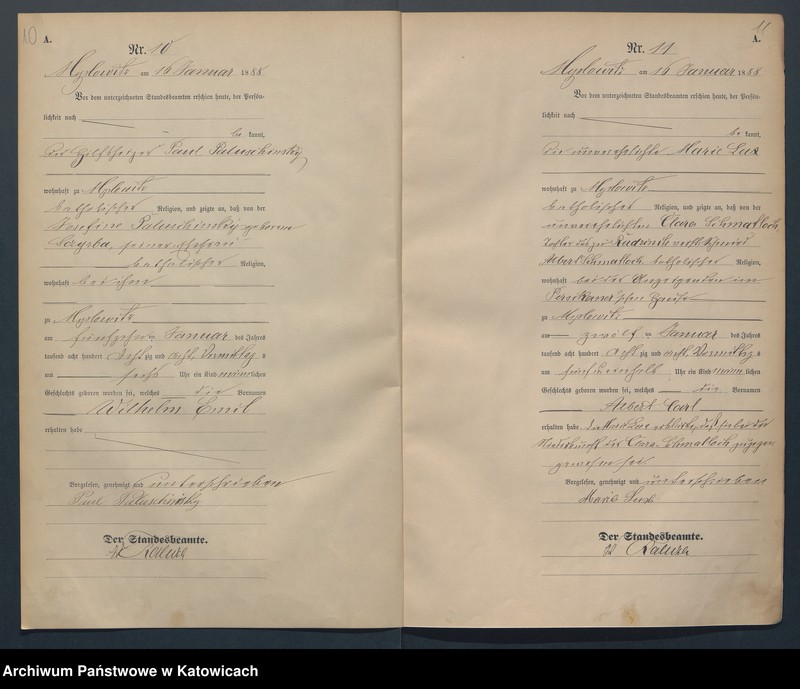 10
A.
Nr. 10
Myslowitz am 16 Januar 1888
Vor dem unterzeichneten Standesbeamten erschien heute, der Persön-
lichkeit nach
be kannt,
der Hilfsheizer Paul Paluschinsky
wohnhaft zu Myslowitz
katholischer Religion, und zeigte an, daß von der
Josefine Paluschinsky geborene
seiner Ehefrau
katholischer Religion,
wohnhaft bei ihm
zu Myslowitz
am fünfzehn ten Januar des Jahres
tausend acht hundert acht zig und acht Vormittags
um sechs Uhr ein Kind männlichen
Geschlechts geboren worden sei, welches die Vornamen
Wilhelm Emil
erhalten habe
Vorgelesen, genehmigt und unterschrieben
Paul Paluschinsky
Der Standesbeamte.
Kaluza
11
A.
Nr. 11
Myslowitz am 16 Januar 1888
Vor dem unterzeichneten Standesbeamten erschien heute, der Persön-
lichkeit nach
be kannt,
die unverehelichte Marie Lux
wohnhaft zu Myslowitz
katholischer Religion, und zeigte an, daß von der
unverehelichten Clara Schmalloch,
Tochter des zu verst.
Albert Schmalloch katholischer Religion,
wohnhaft bei der Anzeigenden im
Hause
zu Myslowitz
am zwölf ten Januar des Jahres
tausend acht hundert acht zig und acht Vormittags
um fünf und einhalb Uhr ein Kind männlichen
Geschlechts geboren worden sei, welches die Vornamen
Albert Carl
erhalten habe. die Marie Lux erklärte, daß sie bei der
Niederkunft der Clara Schmalloch zugegen
gewesen sei.
Vorgelesen, genehmigt und unterschrieben
Marie Lux
Der Standesbeamte.
Kaluza
Archiwum Państwowe w Katowicach